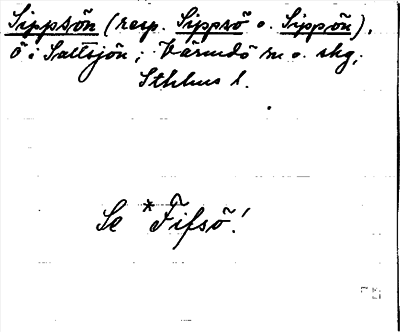 Sippsön (resp. Sippsö o. Sippön),
ö i Saltsjön; Värmdö sn o. skg;
Sthlms l.
Se *Fifsö!